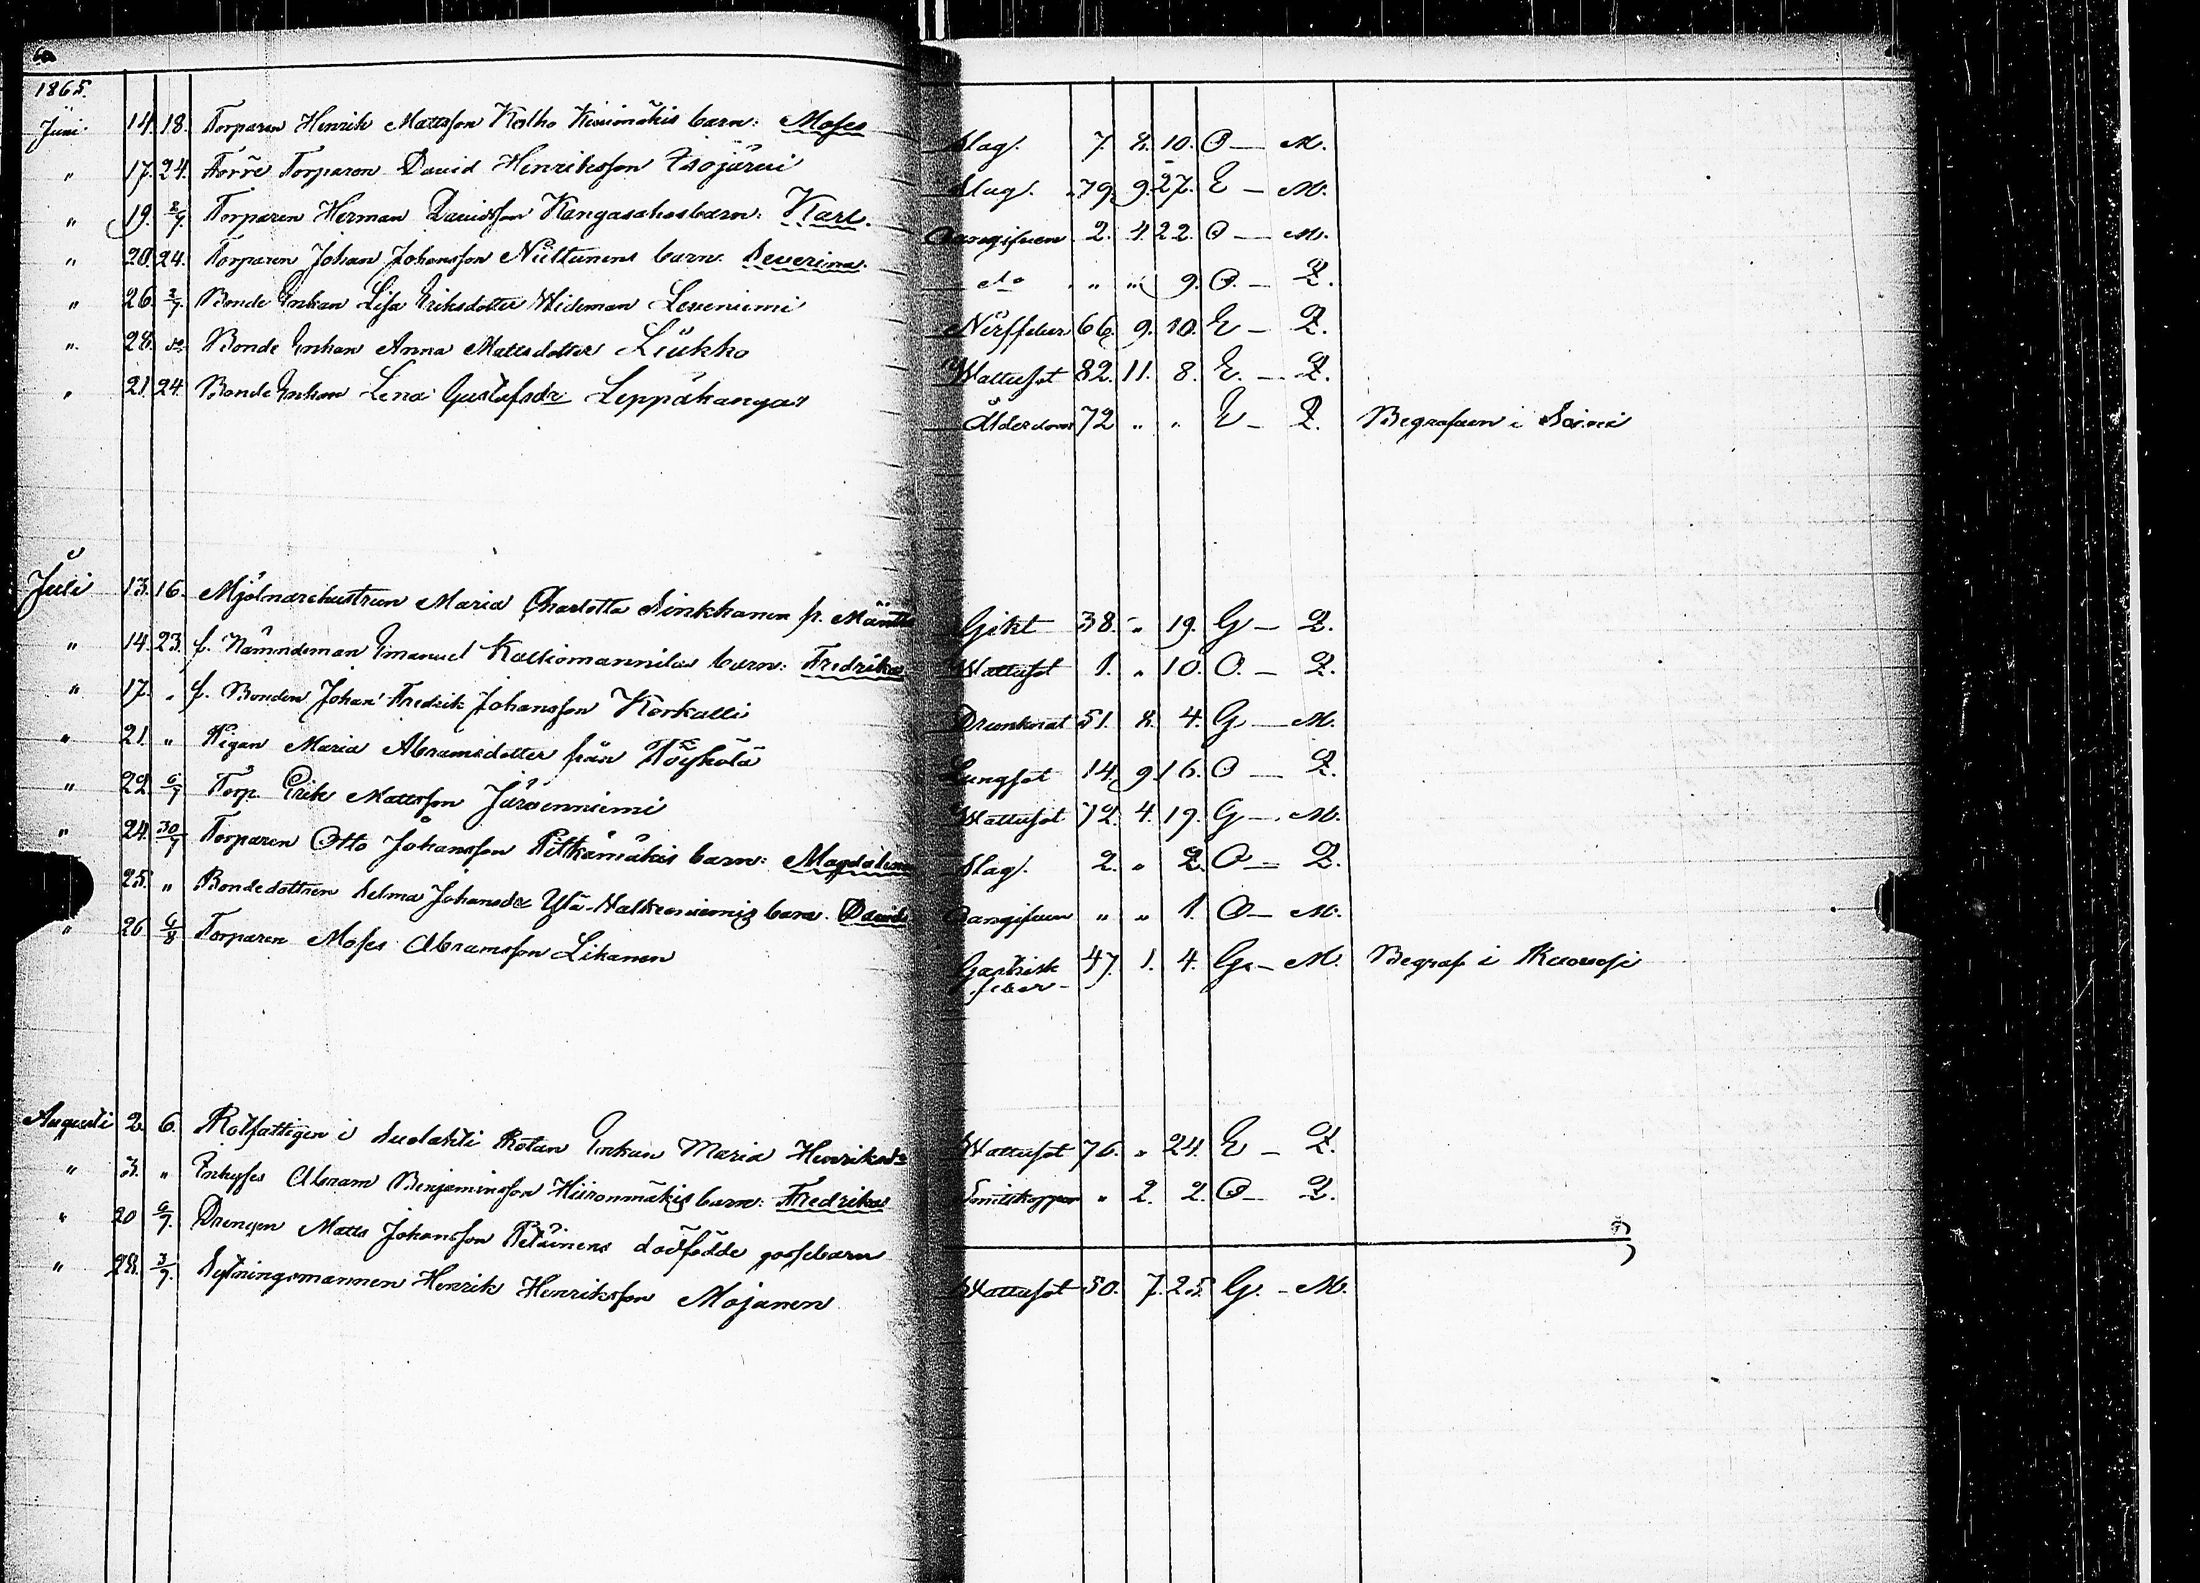 1865.
Juni 14. 18. Torparen Henrik Mattsson Kolho Kiviomäkis barn: Moses Slag. 7. 8. 10. O — M.
" 17. 24. Förre Torparen David Henriksson Isojärvi Slag. 79. 9. 27. E — M.
" 19. 2/7. Torparen Herman Davidsson Kangasahos barn: Karl. Oangifven 2. 4. 22. O — M.
" 20. 24. Torparen Johan Johansson Niittunens barn: Severina. do " " 9. O. — Q.
" 26. 2/7. Bonde Enkan Lisa Eriksdotter Wideman Leveniemi Nerffeber 66. 9. 10. E — Q.
" 28. do Bonde Enkan Anna Mattsdotter Liukko Wattusot 82. 11. 8. E. — Q.
" 21. 24. Bonde Enkan Lena Gustafsdr Leppäkangas Ålderdom 72 " " E — Q. Begrafven i Soini
Juli 13. 16. Mjölnarehustrun Maria Charlotta Sinkkonen fr. Gikt 38. " 19. G — Q.
" 14. 23. f. Nämndeman Emanuel Kalliomannilas barn: Fredrika Wattusot 1. " 10. O. — Q.
" 17. " f. Bonden Johan Fredrik Johansson Korkatti Drunknat 51. 8. 4. G — M.
" 21. " Pigan Maria Abramsdotter från Töyhölä Lungsot 14. 9. 16. O — Q.
" 22. 6/7 Torp. Erik Mattsson Järvenniemi Wattusot 72. 4. 19. G — M.
" 24. 30/7 Torparen Otto Johansson Pitkämäkis barn: Magdalena Slag. 2. " 2. O — Q.
25. " Bondedottren Selma Johansdr barn: David Oangifven " " 1. O — M.
" 26. 6/8 Torparen Moses Abramsson Likanen Gastrisk feber — 47. 1. 4. G. — M. Begraf. i
Augusti 2. 6. Rotfattigen i Suolahti Rotan Enkan Maria Henriksdr Wattusot 76. " 24. E — Q.
" 3. " Inhyses Abram Benjaminsson Hiironmäkis barn: Fredrika Smittkoppor " 2. 2. O — Q.
" 20 6/7. Drengen Matts Johansson Petäinens dödfödde gossebarn
" 28. 3/7. Sytningsmannen Henrik Henriksson Mojanen Wattusot 50. 7. 25. G. — M.